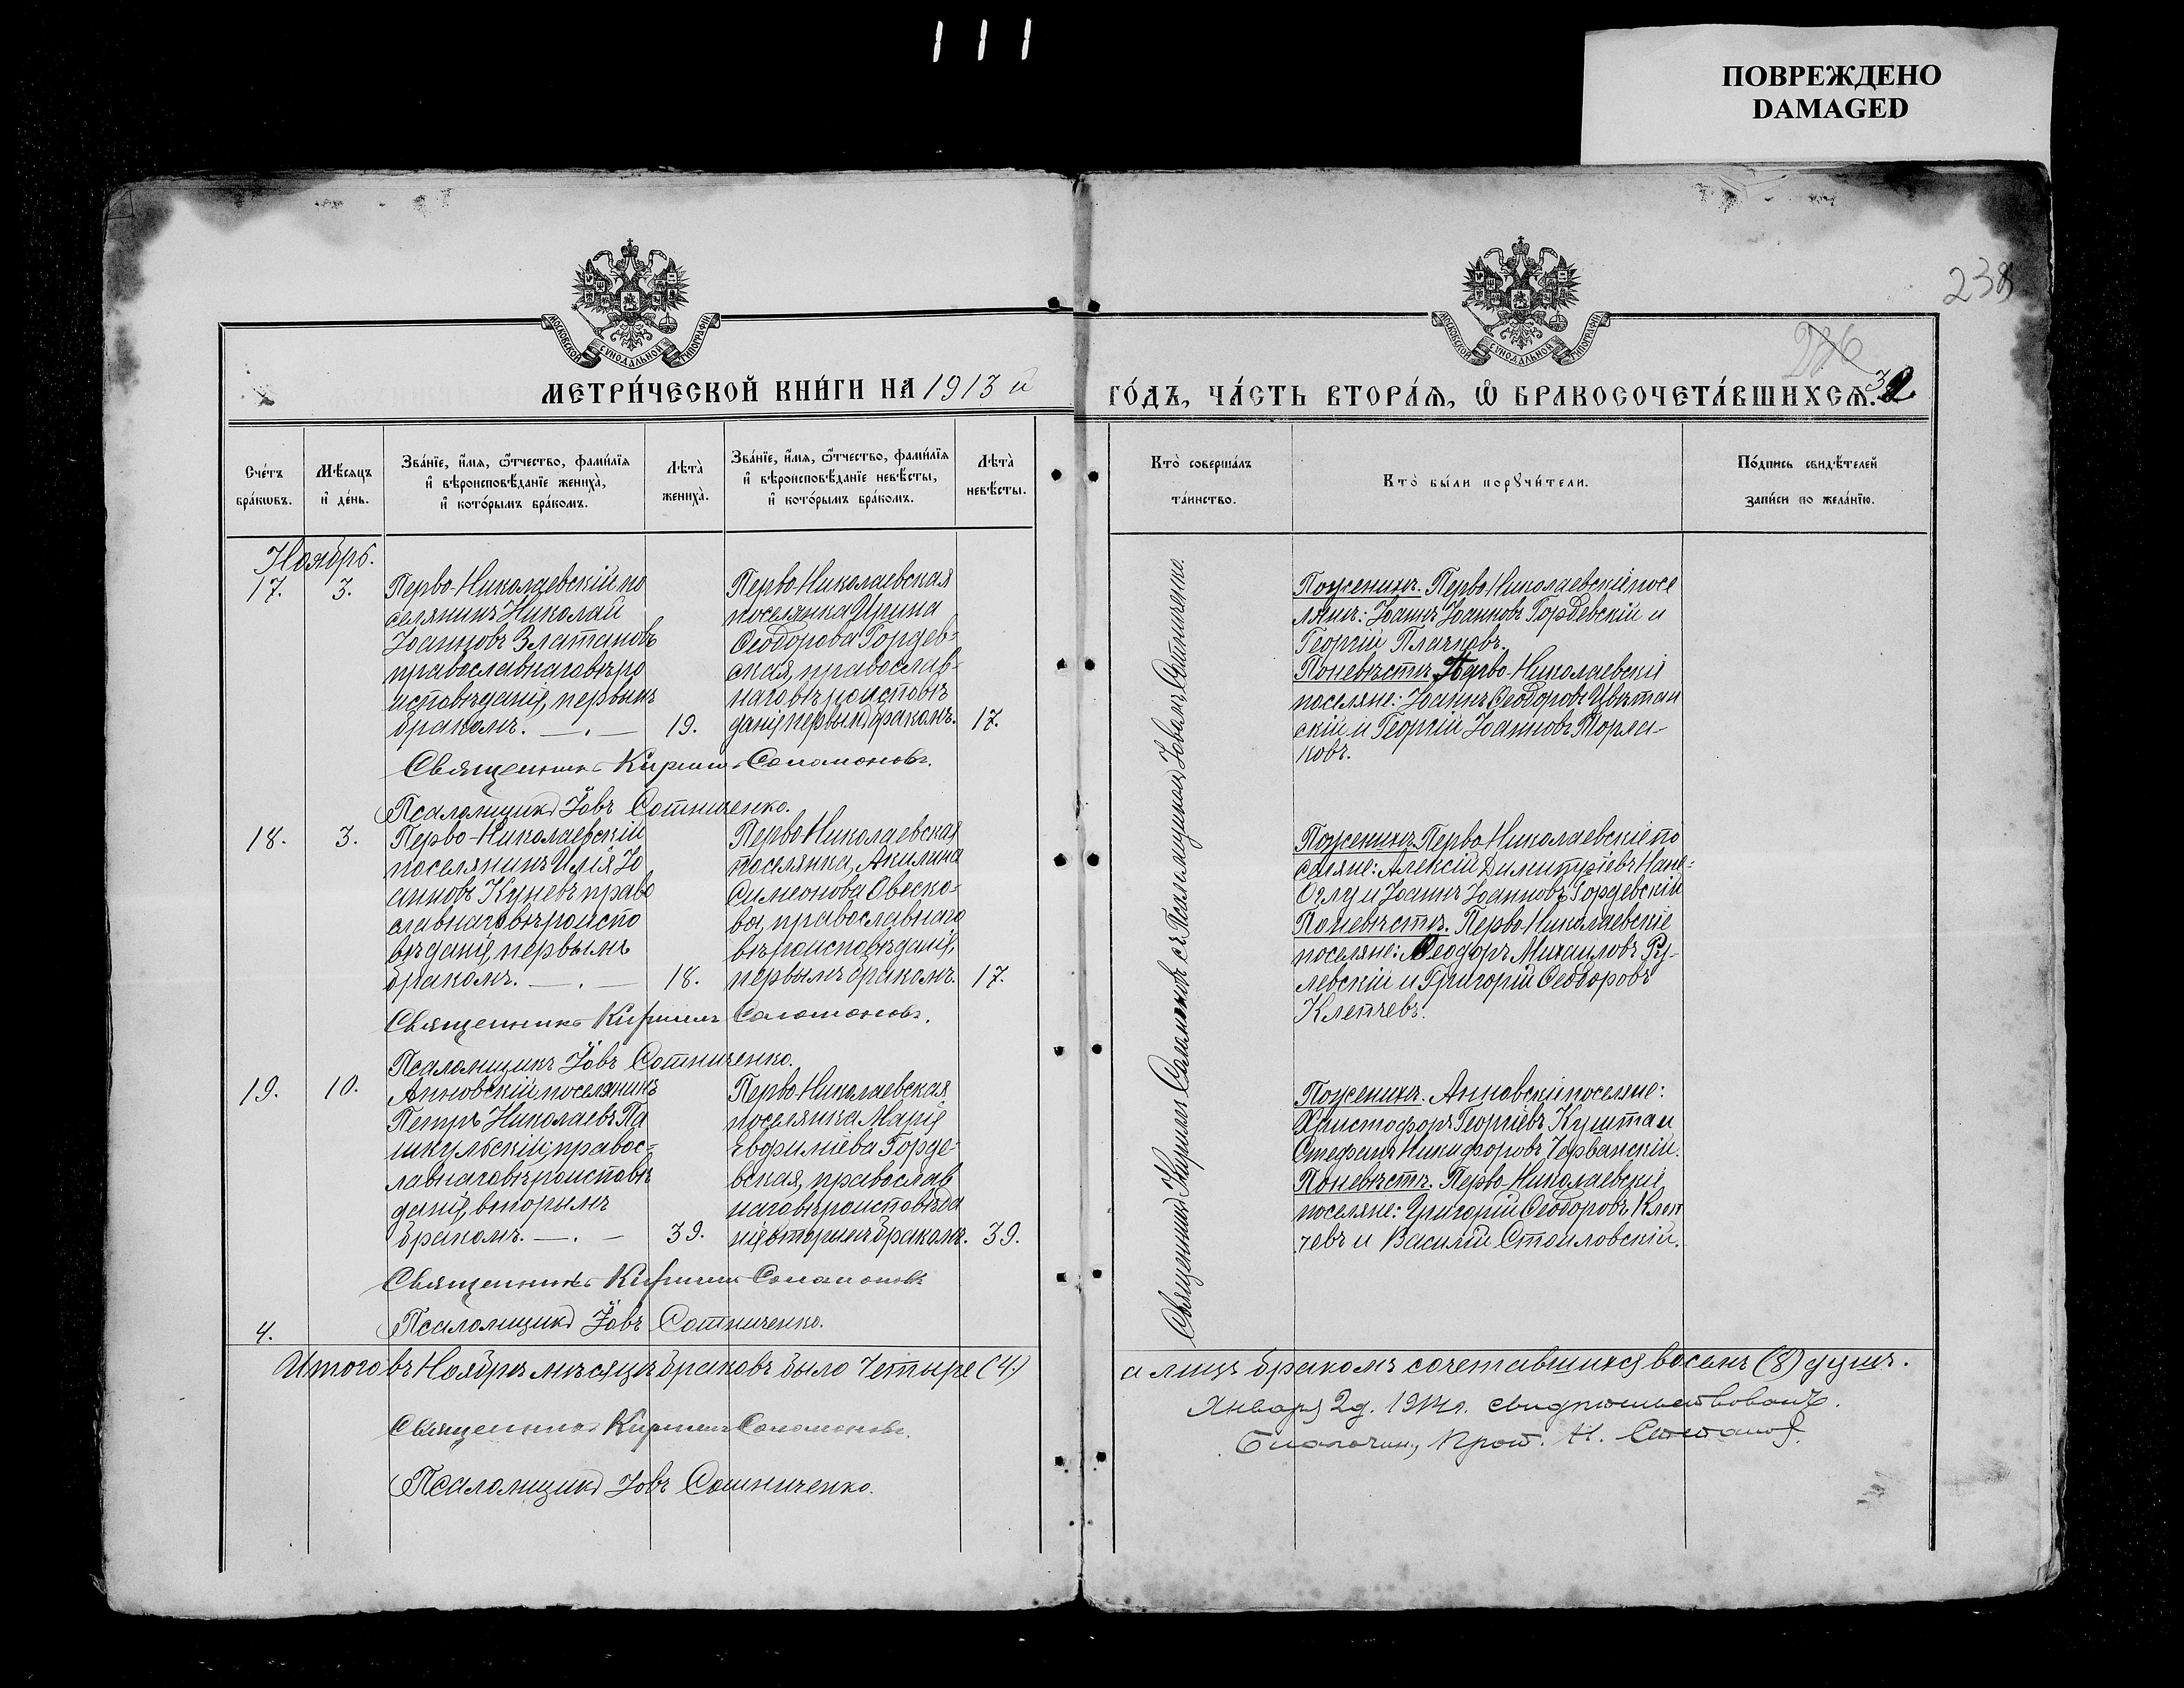 111
ПОВРЕЖДЕНО
DAMAGED
238
226
МОСКОВСКОЙ СѴНОДАЛЬНОЙ ТИПОГРАФІИ
МОСКОВСКОЙ СѴНОДАЛЬНОЙ ТИПОГРАФІИ
МЕТРИ́ЧЕСКОЙ КНИ́ГИ НА 1913 й
ГО́ДЪ, ЧА́СТЬ ВТОРА́Ѧ, Ѡ҆ БРАКОСОЧЕТА́ВШИХСѦ.
Сче́тъ бра́кѡвъ.
Мѣ́сѧцъ и҆ де́нь.
Зва́нїе, и҆́мѧ, ѻ҆́тчество, фами́лїѧ и҆ вѣроисповѣ́данїе жениха̀, и҆ кото́рымъ бра́комъ.
Лѣта̀ жениха̀.
Зва́нїе, и҆́мѧ, ѻ҆́тчество, фами́лїѧ и҆ вѣроисповѣ́данїе невѣ́сты, и҆ кото́рымъ бра́комъ.
Лѣта̀ невѣ́сты.
Кто̀ соверша́лъ та́инство.
Кто̀ бы́ли порꙋчи́тели.
По́дпись свидѣ́телей за́писи по жела́нїю.
Ноябрь.
17.
3.
Перво-Николаевскій по
селянинъ Николай
Іоанновъ Златановъ
православнаго вѣро
исповѣданія, первымъ
бракомъ. — . —
19.
Перво-Николаевская
поселянка Ирина
Ѳеодорова Гордев-
ская, православ-
наго вѣроисповѣ
данія первымъ бракомъ.
17.
Священникъ Кириллъ Саламоновъ.
Псаломщикъ Іовъ Сотниченко.
18.
3.
Перво-Николаевскій
поселянинъ Илія Іо
анновъ Куневъ право
славнаго вѣроиспо
вѣданія, первымъ
бракомъ. — . —
18.
Перво-Николаевская
поселянка, Акилина
Симеонова Овеско-
ва, православнаго
вѣроисповѣданія,
первымъ бракомъ.
17.
Священникъ Кириллъ Саламоновъ.
Псаломщикъ Іовъ Сотниченко.
19.
10.
Анновскій поселянинъ
Петръ Николаевъ Па
шкульскій, правос-
лавнаго вѣроисповѣ
данія, вторымъ
бракомъ. — . —
39.
Перво-Николаевская
поселянка Марія
Евфиміева Горде-
вская, православ
наго вѣроисповѣда
нія вторымъ бракомъ.
39.
Священникъ Кириллъ Саламоновъ
Псаломщикъ Іовъ Сотниченко.
4.
Итого въ Ноябрѣ мѣсяцѣ браковъ было Четыре (4)
Священникъ Кириллъ Саламоновъ.
Псаломщикъ Іовъ Сотниченко.
Священникъ Кириллъ Саламоновъ съ Псаломщикомъ Іовомъ Сотниченко
По женихѣ. Перво-Николаевскіе посе
ляне: Іоаннъ Іоанновъ Гордевскій и
Георгій Плачковъ.
По невѣстѣ. Перво-Николаевскіе
поселяне: Іоаннъ Ѳеодоровъ Цвѣтан
скій и Георгій Іоанновъ Торла-
ковъ.
По женихѣ. Перво-Николаевскіе по
селяне: Алексій Димитріевъ Нане-
Оглу и Іоаннъ Іоанновъ Гордевскій
По невѣстѣ. Перво-Николаевскіе
поселяне: Ѳеодоръ Михаиловъ Ру-
левскій и Григорій Ѳеодоровъ
Клепчевъ.
По женихѣ. Анновскіе поселяне:
Христофоръ Георгіевъ Кушта и
Стефанъ Никифоровъ Черванскій.
По невѣстѣ. Перво-Николаевскіе
поселяне: Григорій Ѳеодоровъ Клеп
чевъ и Василій Стоиловскій.
а лицъ бракомъ сочетавшихся восемь (8) душъ.
Января 2 д. 1914 г. свидѣтельствовалъ.
Благочин., Прот. Н. Степанов.